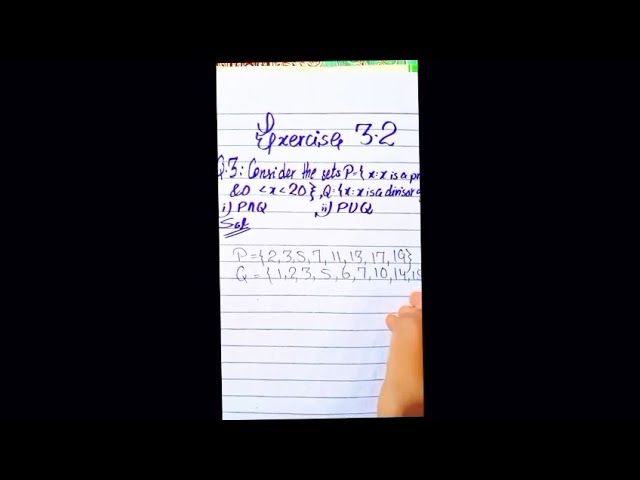 Exercise 3.2
Q.3: Consider the sets P={x:x is a pr
&0 <x<20}, Q={x:x is a divisor o
i) P∩Q ,ii) P∪Q
Sol
P={2,3,5,7,11,13,17,19}
Q={1,2,3,5,6,7,10,14,15